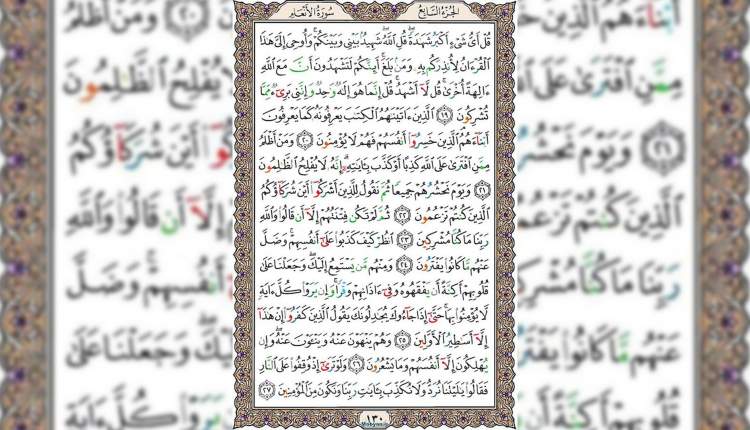 الجزء السابع
سورة الأنعام
قُلْ أَىُّ شَىْءٍ أَكْبَرُ شَهَٰدَةً قُلِ ٱللَّهُ شَهِيدٌۢ بَيْنِى وَبَيْنَكُمْ وَأُوحِىَ إِلَىَّ هَٰذَا
ٱلْقُرْءَانُ لِأُنذِرَكُم بِهِۦ وَمَنۢ بَلَغَ أَئِنَّكُمْ لَتَشْهَدُونَ أَنَّ مَعَ ٱللَّهِ
ءَالِهَةً أُخْرَىٰ قُل لَّآ أَشْهَدُ قُلْ إِنَّمَا هُوَ إِلَٰهٌ وَٰحِدٌ وَإِنَّنِى بَرِىٓءٌ مِّمَّا
تُشْرِكُونَ ﴿١٩﴾ ٱلَّذِينَ ءَاتَيْنَٰهُمُ ٱلْكِتَٰبَ يَعْرِفُونَهُۥ كَمَا يَعْرِفُونَ
أَبْنَآءَهُمُ ٱلَّذِينَ خَسِرُوٓا۟ أَنفُسَهُمْ فَهُمْ لَا يُؤْمِنُونَ ﴿٢٠﴾ وَمَنْ أَظْلَمُ
مِمَّنِ ٱفْتَرَىٰ عَلَى ٱللَّهِ كَذِبًا أَوْ كَذَّبَ بِـَٔايَٰتِهِۦٓ إِنَّهُۥ لَا يُفْلِحُ ٱلظَّٰلِمُونَ
﴿٢١﴾ وَيَوْمَ نَحْشُرُهُمْ جَمِيعًا ثُمَّ نَقُولُ لِلَّذِينَ أَشْرَكُوٓا۟ أَيْنَ شُرَكَآؤُكُمُ
ٱلَّذِينَ كُنتُمْ تَزْعُمُونَ ﴿٢٢﴾ ثُمَّ لَمْ تَكُن فِتْنَتُهُمْ إِلَّآ أَن قَالُوا۟ وَٱللَّهِ
رَبِّنَا مَا كُنَّا مُشْرِكِينَ ﴿٢٣﴾ ٱنظُرْ كَيْفَ كَذَبُوا۟ عَلَىٰٓ أَنفُسِهِمْ وَضَلَّ
عَنْهُم مَّا كَانُوا۟ يَفْتَرُونَ ﴿٢٤﴾ وَمِنْهُم مَّن يَسْتَمِعُ إِلَيْكَ وَجَعَلْنَا عَلَىٰ
قُلُوبِهِمْ أَكِنَّةً أَن يَفْقَهُوهُ وَفِىٓ ءَاذَانِهِمْ وَقْرًا وَإِن يَرَوْا۟ كُلَّ ءَايَةٍ
لَّا يُؤْمِنُوا۟ بِهَا حَتَّىٰٓ إِذَا جَآءُوكَ يُجَٰدِلُونَكَ يَقُولُ ٱلَّذِينَ كَفَرُوٓا۟ إِنْ هَٰذَآ
إِلَّآ أَسَٰطِيرُ ٱلْأَوَّلِينَ ﴿٢٥﴾ وَهُمْ يَنْهَوْنَ عَنْهُ وَيَنْـَٔوْنَ عَنْهُ وَإِن
يُهْلِكُونَ إِلَّآ أَنفُسَهُمْ وَمَا يَشْعُرُونَ ﴿٢٦﴾ وَلَوْ تَرَىٰٓ إِذْ وُقِفُوا۟ عَلَى ٱلنَّارِ
فَقَالُوا۟ يَٰلَيْتَنَا نُرَدُّ وَلَا نُكَذِّبَ بِـَٔايَٰتِ رَبِّنَا وَنَكُونَ مِنَ ٱلْمُؤْمِنِينَ ﴿٢٧﴾
١٣٠